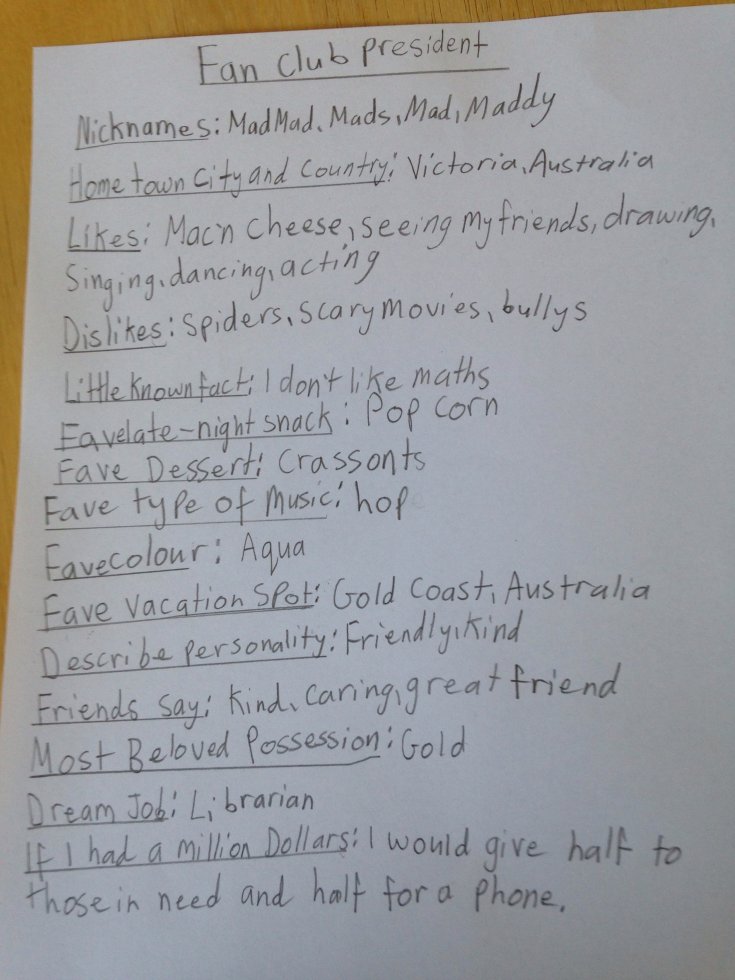 Fan club president
Nicknames: MadMad, Mads, Mad, Maddy
Home town City and Country: Victoria, Australia
Likes: Mac'n Cheese, seeing my friends, drawing,
Singing, dancing, acting
Dislikes: Spiders, Scary Movies, bullys
Little known fact: I don't like maths
Fave late-night snack: Pop corn
Fave Dessert: Crassonts
Fave type of Music: hop
Fave colour: Aqua
Fave Vacation Spot: Gold Coast, Australia
Describe personality: Friendly, Kind
Friends Say: Kind, Caring, great friend
Most Beloved Possession: Gold
Dream Job: Librarian
If I had a million Dollars: I would give half to
those in need and half for a phone.